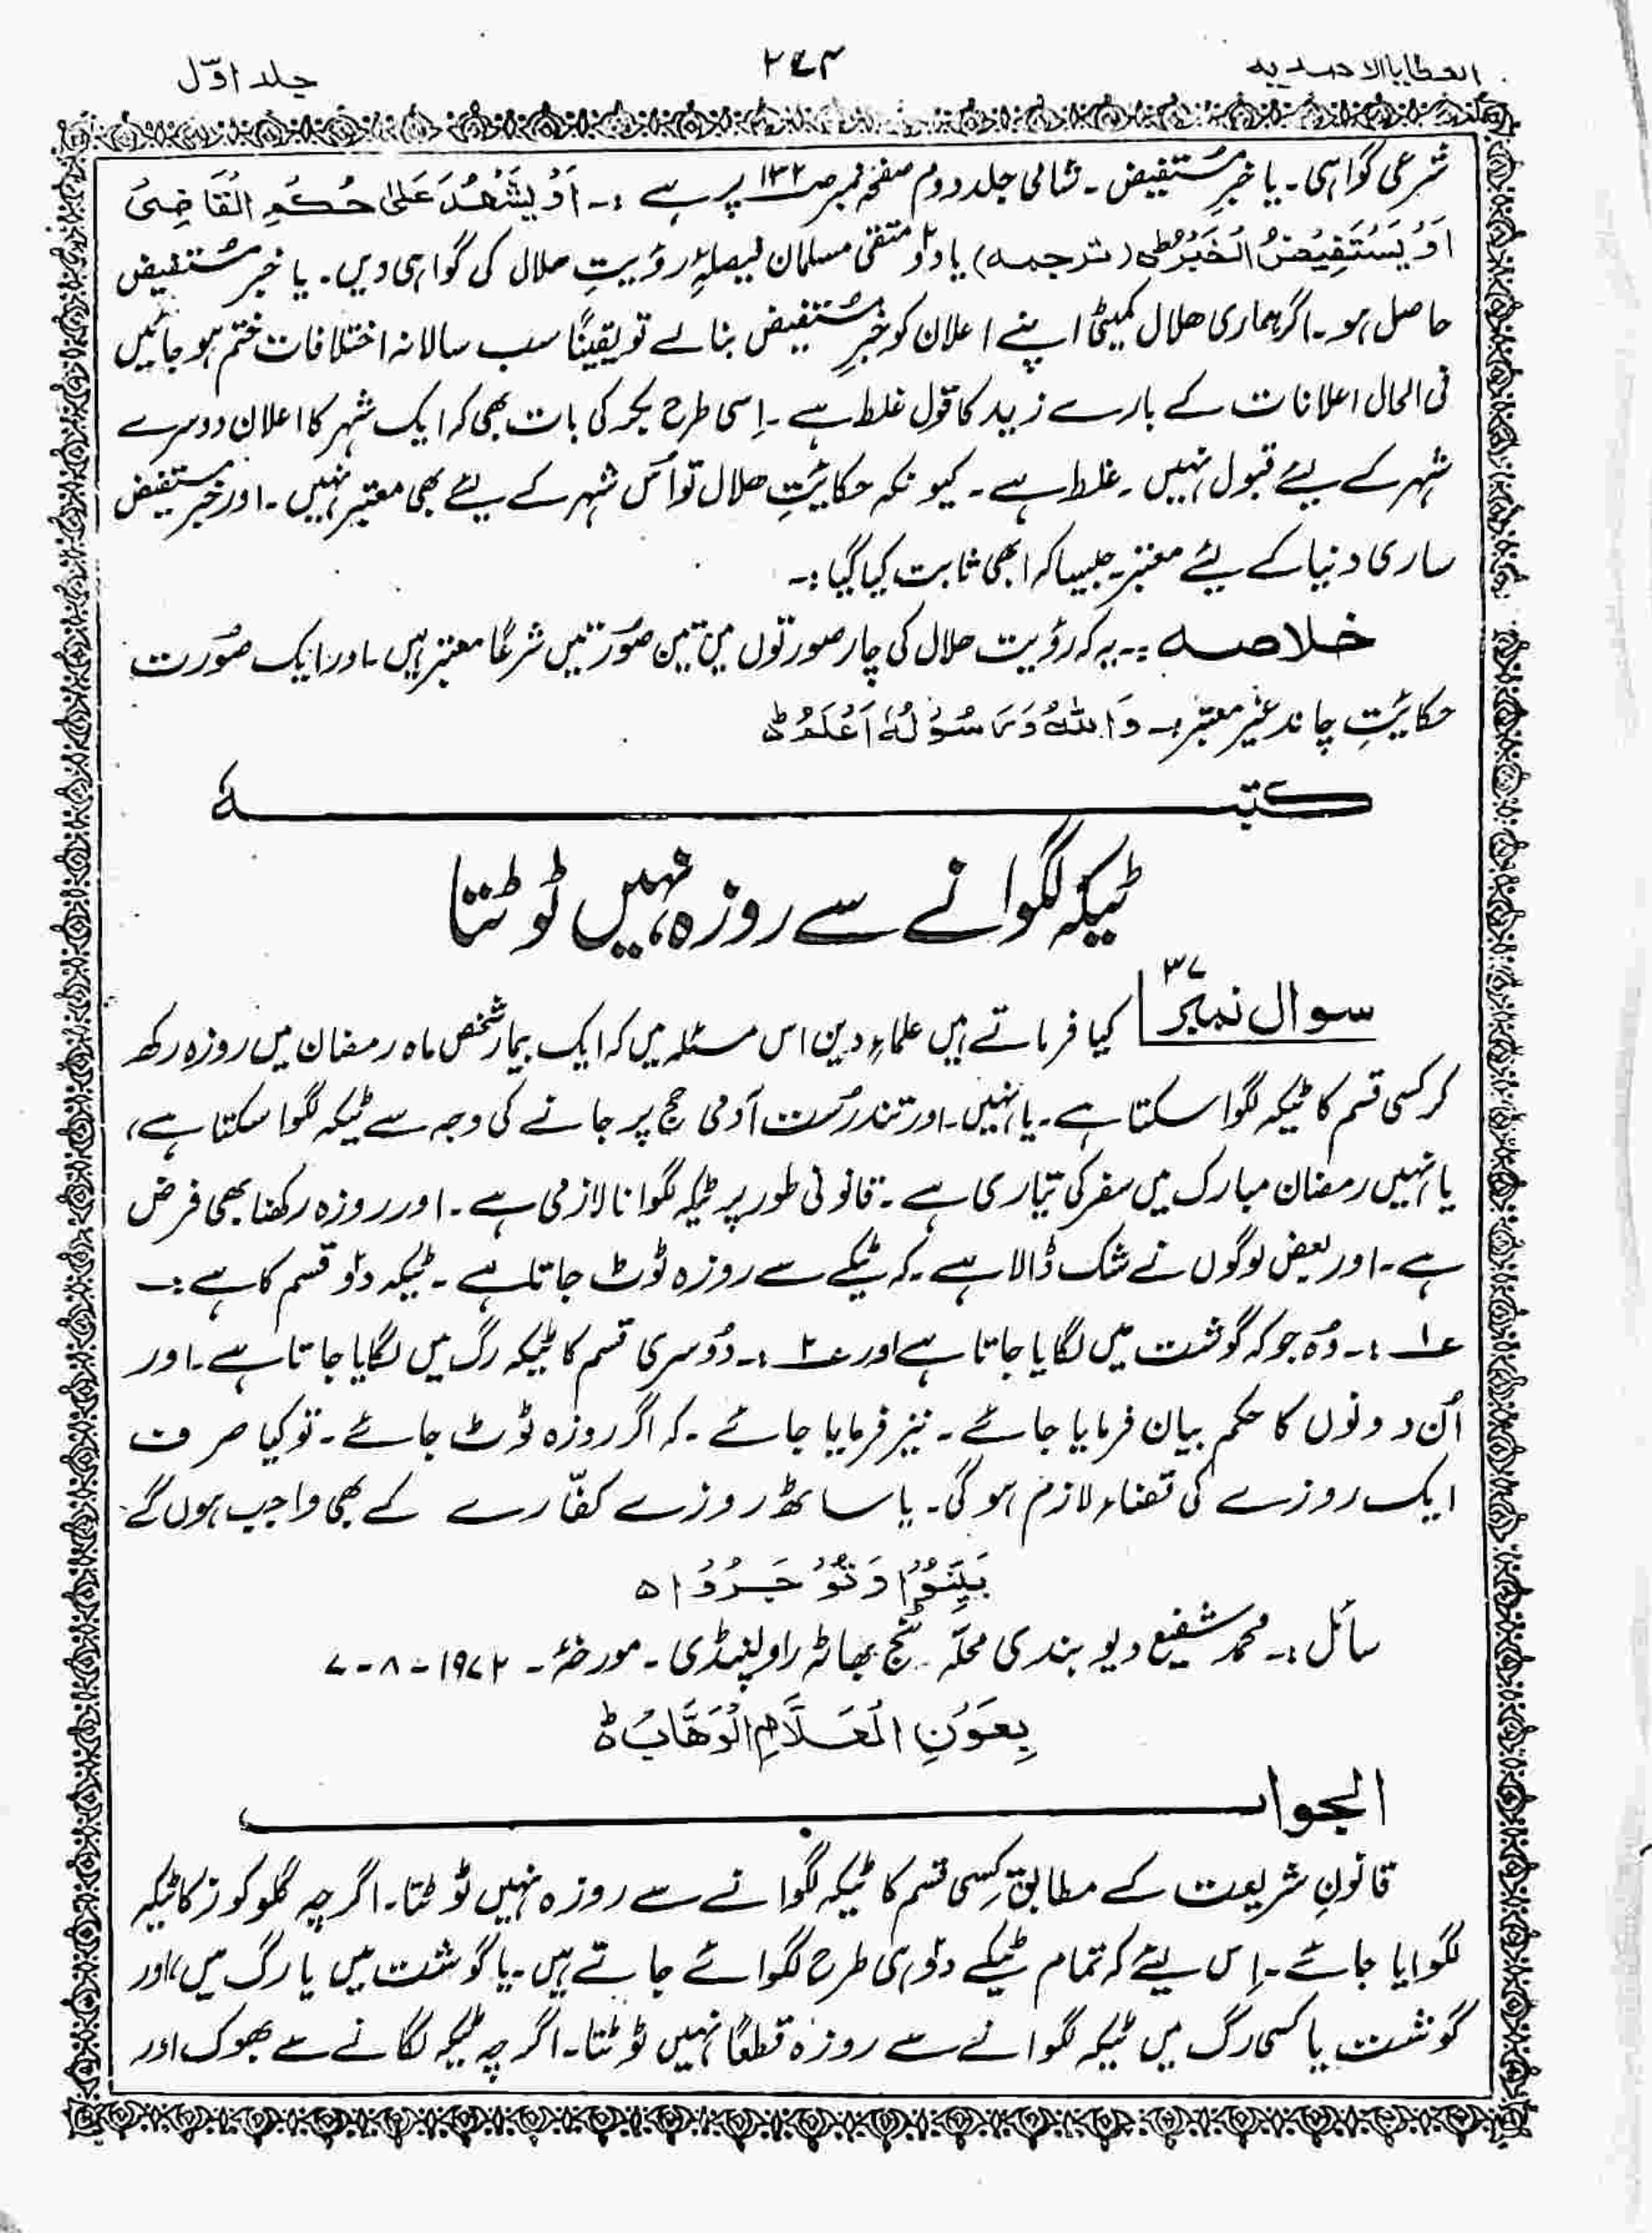 العطایا الاحمدیہ ۲۷۴ جلد اوّل
شرعی گواہی۔ یا خبرِ مُستفیض۔ شامی جلد دوم صفحہ نمبر ص۱۳۲ پر ہے :۔ اَوْ یَشْھَدُ عَلیٰ حُکْمِ الْقَاضِیْ
اَوْ یَسْتَفِیْضُ الْخَبَرُ ط (ترجمہ) یا دو متقی مسلمان فیصلۂِ رؤیتِ ھلال کی گواہی دیں۔ یا خبرِ مُستفیض
حاصل ہو۔ اگر ہماری ھلال کمیٹی اپنے اعلان کو خبرِ مُستفیض بنا لے تو یقیناً سب سالانہ اختلافات ختم ہو جائیں
فی الحال اعلانات کے بارے زید کا قول غلط ہے۔ اِسی طرح بکر کی بات بھی کہ ایک شہر کا اعلان دوسرے
شہر کے لیئے قبول نہیں۔ غلط ہے۔ کیونکہ حکائیتِ ھلال تو اُس شہر کے لیئے بھی معتبر نہیں۔ اور خبرِ مستفیض
ساری دنیا کے لیئے معتبر۔ جیسا کہ ابھی ثابت کیا گیا :۔
خلاصہ :۔ یہ کہ رؤیت ھلال کی چار صورتوں میں تین صُورتیں شرعاً معتبر ہیں۔ اور ایک صُورت
حکائیتِ چاند غیر معتبر :۔ وَاللّٰہُ وَرَسُوْلُہٗ اَعْلَمُ ط
کتبہٗ
ٹیکہ لگوانے سے روزہ نہیں ٹوٹتا
سوال نمبر ۳۷ کیا فرماتے ہیں علماءِ دین اس مسئلہ میں کہ ایک بیمار شخص ماہ رمضان میں روزہ رکھ
کر کسی قسم کا ٹیکہ لگوا سکتا ہے۔ یا نہیں۔ اور تندرُست آدمی حج پر جانے کی وجہ سے ٹیکہ لگوا سکتا ہے،
یا نہیں رمضان مبارک میں سفر کی تیاری ہے۔ قانونی طور پر ٹیکہ لگوانا لازمی ہے۔ اور روزہ رکھنا بھی فرض
ہے۔ اور بعض لوگوں نے شک ڈالا ہے۔ کہ ٹیکے سے روزہ ٹوٹ جاتا ہے۔ ٹیکہ دو قسم کا ہے :۔
ع۱ :۔ وُہ جو کہ گوشت میں لگایا جاتا ہے اور ع۲ :۔ دُوسری قسم کا ٹیکہ رگ میں لگایا جاتا ہے۔ اور
اُن دونوں کا حکم بیان فرمایا جائے۔ نیز فرمایا جائے۔ کہ اگر روزہ ٹوٹ جائے۔ تو کیا صرف
ایک روزے کی قضاء لازم ہو گی۔ یا ساٹھ روزے کفّارے کے بھی واجب ہوں گے
بَیِّنُوْا وَتُوْجَرُوْا ہ
سائل :۔ محمد شفیع دیوبندی محلّہ گنج بھاٹہ راولپنڈی۔ مورخۂ ۔ ۱۹۷۲-۸-۷
بِعَوْنِ الْعَلَّامِ الْوَھَّابُ ط
الجواب
قانونِ شریعت کے مطابق کِسی قسم کا ٹیکہ لگوانے سے روزہ نہیں ٹوٹتا۔ اگرچہ گلوکوز کا ٹیکہ
لگوایا جائے۔ اِس لیئے کہ تمام ٹیکے دو ہی طرح لگوائے جاتے ہیں۔ یا گوشت میں یا رگ میں، اور
گوشت یا کسی رگ میں ٹیکہ لگوانے سے روزہ قطعاً نہیں ٹوٹتا۔ اگرچہ ٹیکہ لگانے سے بھوک اور